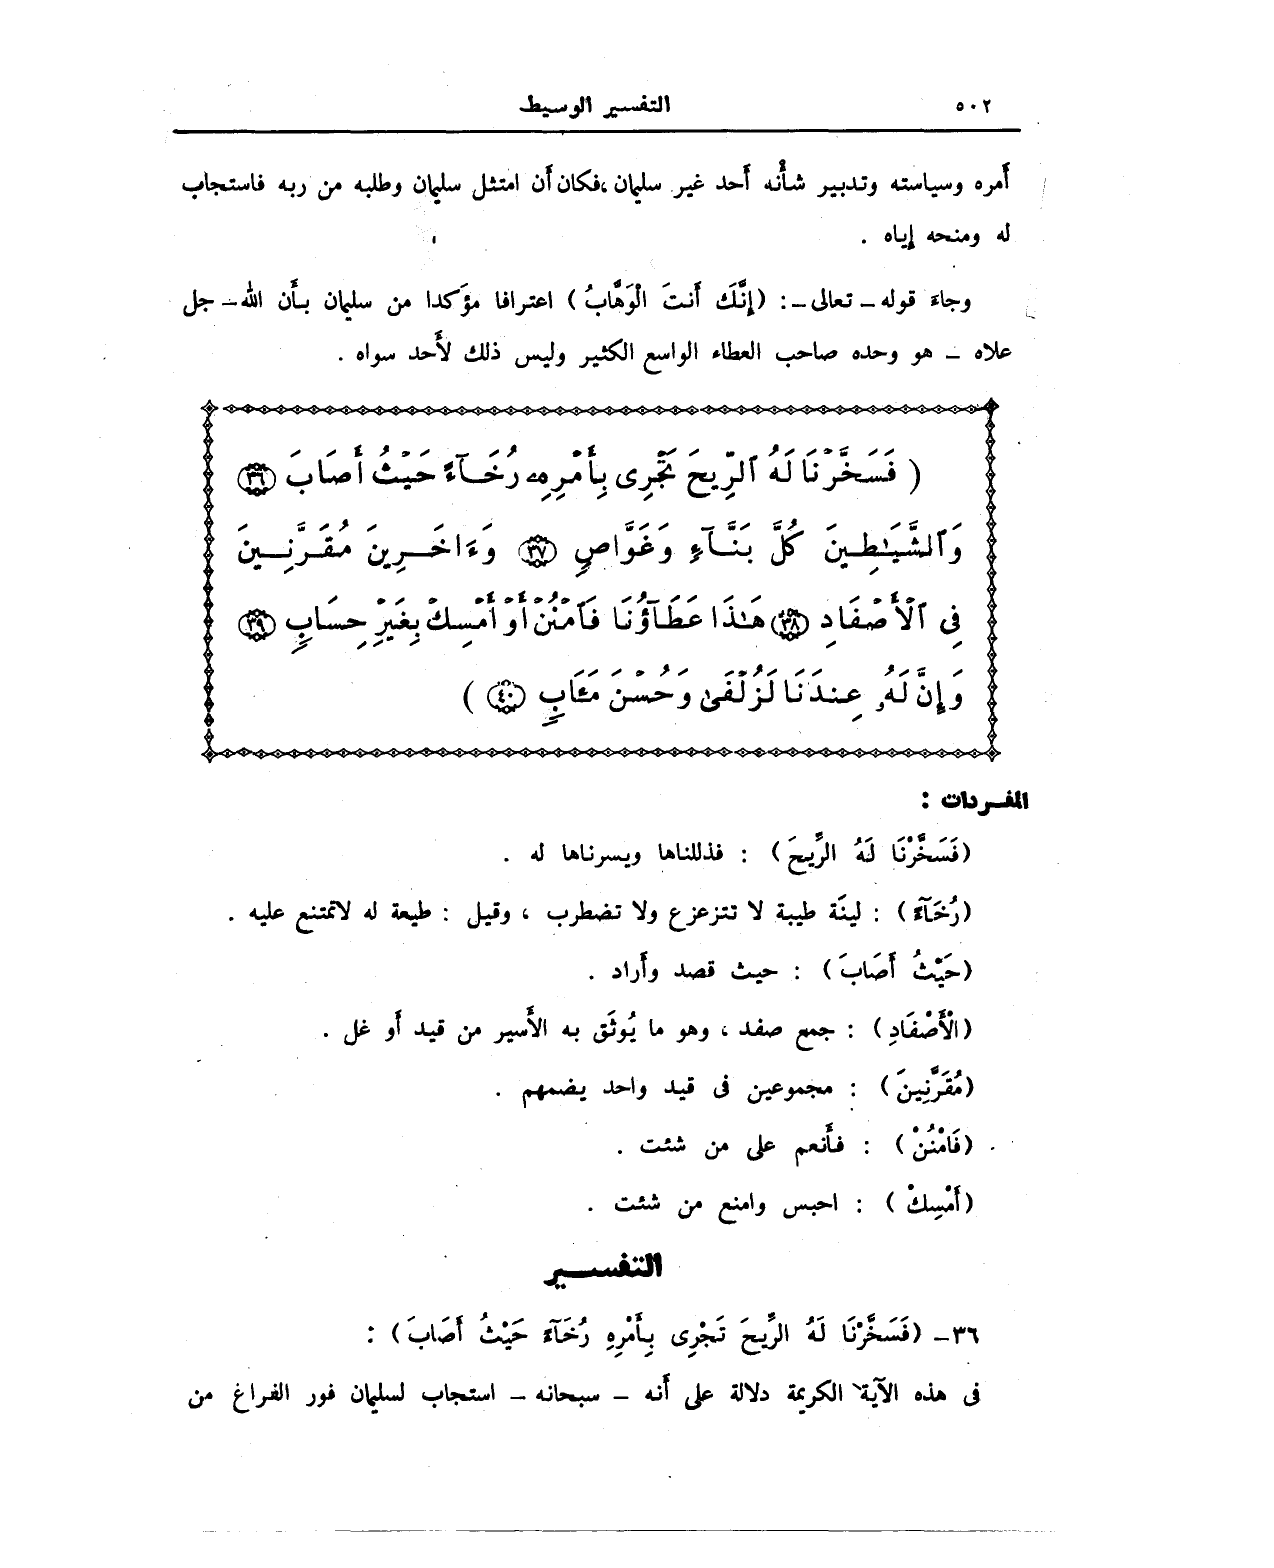 ٥٠٢
التفسير الوسيط
أَمره وسياسته وتدبير شأْنه أَحد غير سليمان ،فكان أَن امتثل سليمان وطلبه من ربه فاستجاب
له ومنحه إِياه .
وجاءَ قوله – تعالى – : (إِنَّكَ أَنتَ الْوَهَّابُ) اعترافا مؤَكدا من سليمان بأَن الله – جل
علاه – هو وحده صاحب العطاء الواسع الكثير وليس ذلك لأَحد سواه .
( فَسَخَّرْنَا لَهُ ٱلرِّيحَ تَجْرِى بِأَمْرِهِۦ رُخَآءً حَيْثُ أَصَابَ ٣٦
وَٱلشَّيَـٰطِينَ كُلَّ بَنَّآءٍ وَغَوَّاصٍ ٣٧ وَءَاخَرِينَ مُقَرَّنِينَ
فِى ٱلْأَصْفَادِ ٣٨ هَـٰذَا عَطَآؤُنَا فَٱمْنُنْ أَوْ أَمْسِكْ بِغَيْرِ حِسَابٍ ٣٩
وَإِنَّ لَهُۥ عِندَنَا لَزُلْفَىٰ وَحُسْنَ مَـَٔابٍ ٤٠ )
المفردات :
(فَسَخَّرْنَا لَهُ الرِّيحَ) : فذللناها ويسرناها له .
(رُخَآءً) : لينَة طيبة لا تتزعزع ولا تضطرب ، وقيل : طيعة له لا تمتنع عليه .
(حَيْثُ أَصَابَ) : حيث قصد وأَراد .
(الْأَصْفَادِ) : جمع صفد ، وهو ما يُوثَق به الأَسير من قيد أَو غل .
(مُقَرَّنِينَ) : مجموعين فى قيد واحد يضمهم .
(فَامْنُنْ) : فأَنعم على من شئت .
(أَمْسِكْ) : احبس وامنع من شئت .
التفسير
٣٦– (فَسَخَّرْنَا لَهُ الرِّيحَ تَجْرِى بِأَمْرِهِ رُخَآءً حَيْثُ أَصَابَ) :
فى هذه الآية الكريمة دلالة على أَنه – سبحانه – استجاب لسليمان فور الفراغ من